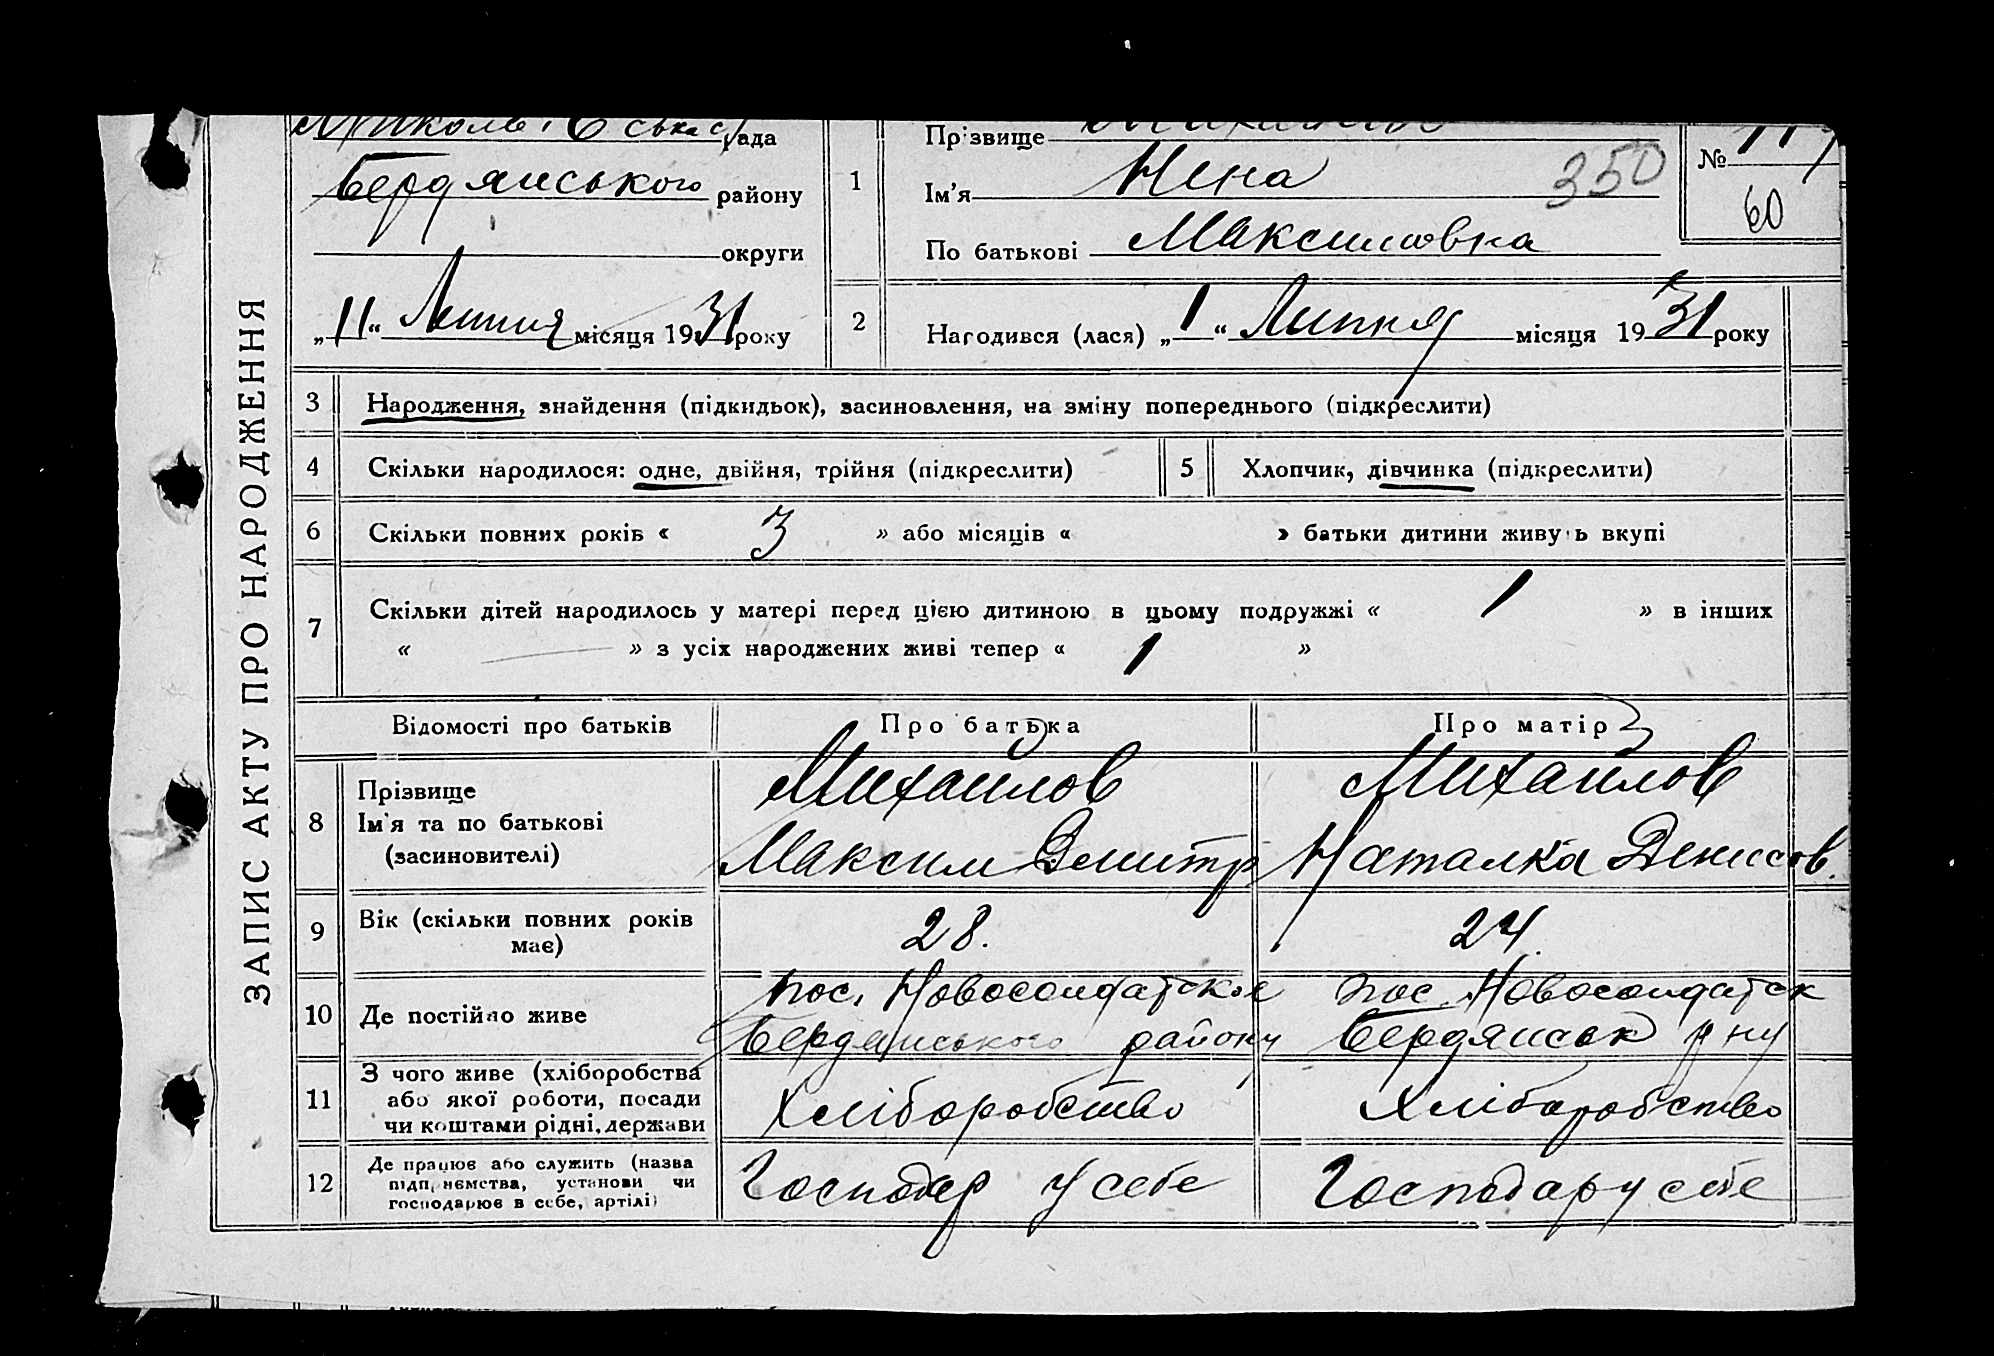 ЗАПИС АКТУ ПРО НАРОДЖЕННЯ
рада
Бердянського району
округи
„11“ Липня місяця 1931 року
1
Прізвище
Ім'я Нена 350
По батькові Максимовна
№
60
2 Народився (лася) „1“ Липня місяця 1931 року
3 Народження, знайдення (підкидьок), засиновлення, на зміну попереднього (підкреслити)
4 Скільки народилося: одне, двійня, трійня (підкреслити) 5 Хлопчик, дівчинка (підкреслити)
6 Скільки повних років « 3 » або місяців « » батьки дитини живуть вкупі
7 Скільки дітей народилось у матері перед цією дитиною в цьому подружжі « 1 » в інших
« — » з усіх народжених живі тепер « 1 »
Відомості про батьків Про батька Про матір
8 Прізвище
Ім'я та по батькові
(засиновителі)
Михайлов
Максим Дмитр
Михайлов
Наталка Денисов.
9 Вік (скільки повних років
має)
28.
24.
10 Де постійно живе
пос. Новосолдатское
Бердянського району
пос. Новосолдатск
Бердянськ р ну
11 З чого живе (хліборобства
або якої роботи, посади
чи коштами рідні, держави
Хліборобство
Хліборобство
12 Де працює або служить (назва
підприємства, установи чи
господарює в себе, артілі)
Господар у себе
Господар у себе